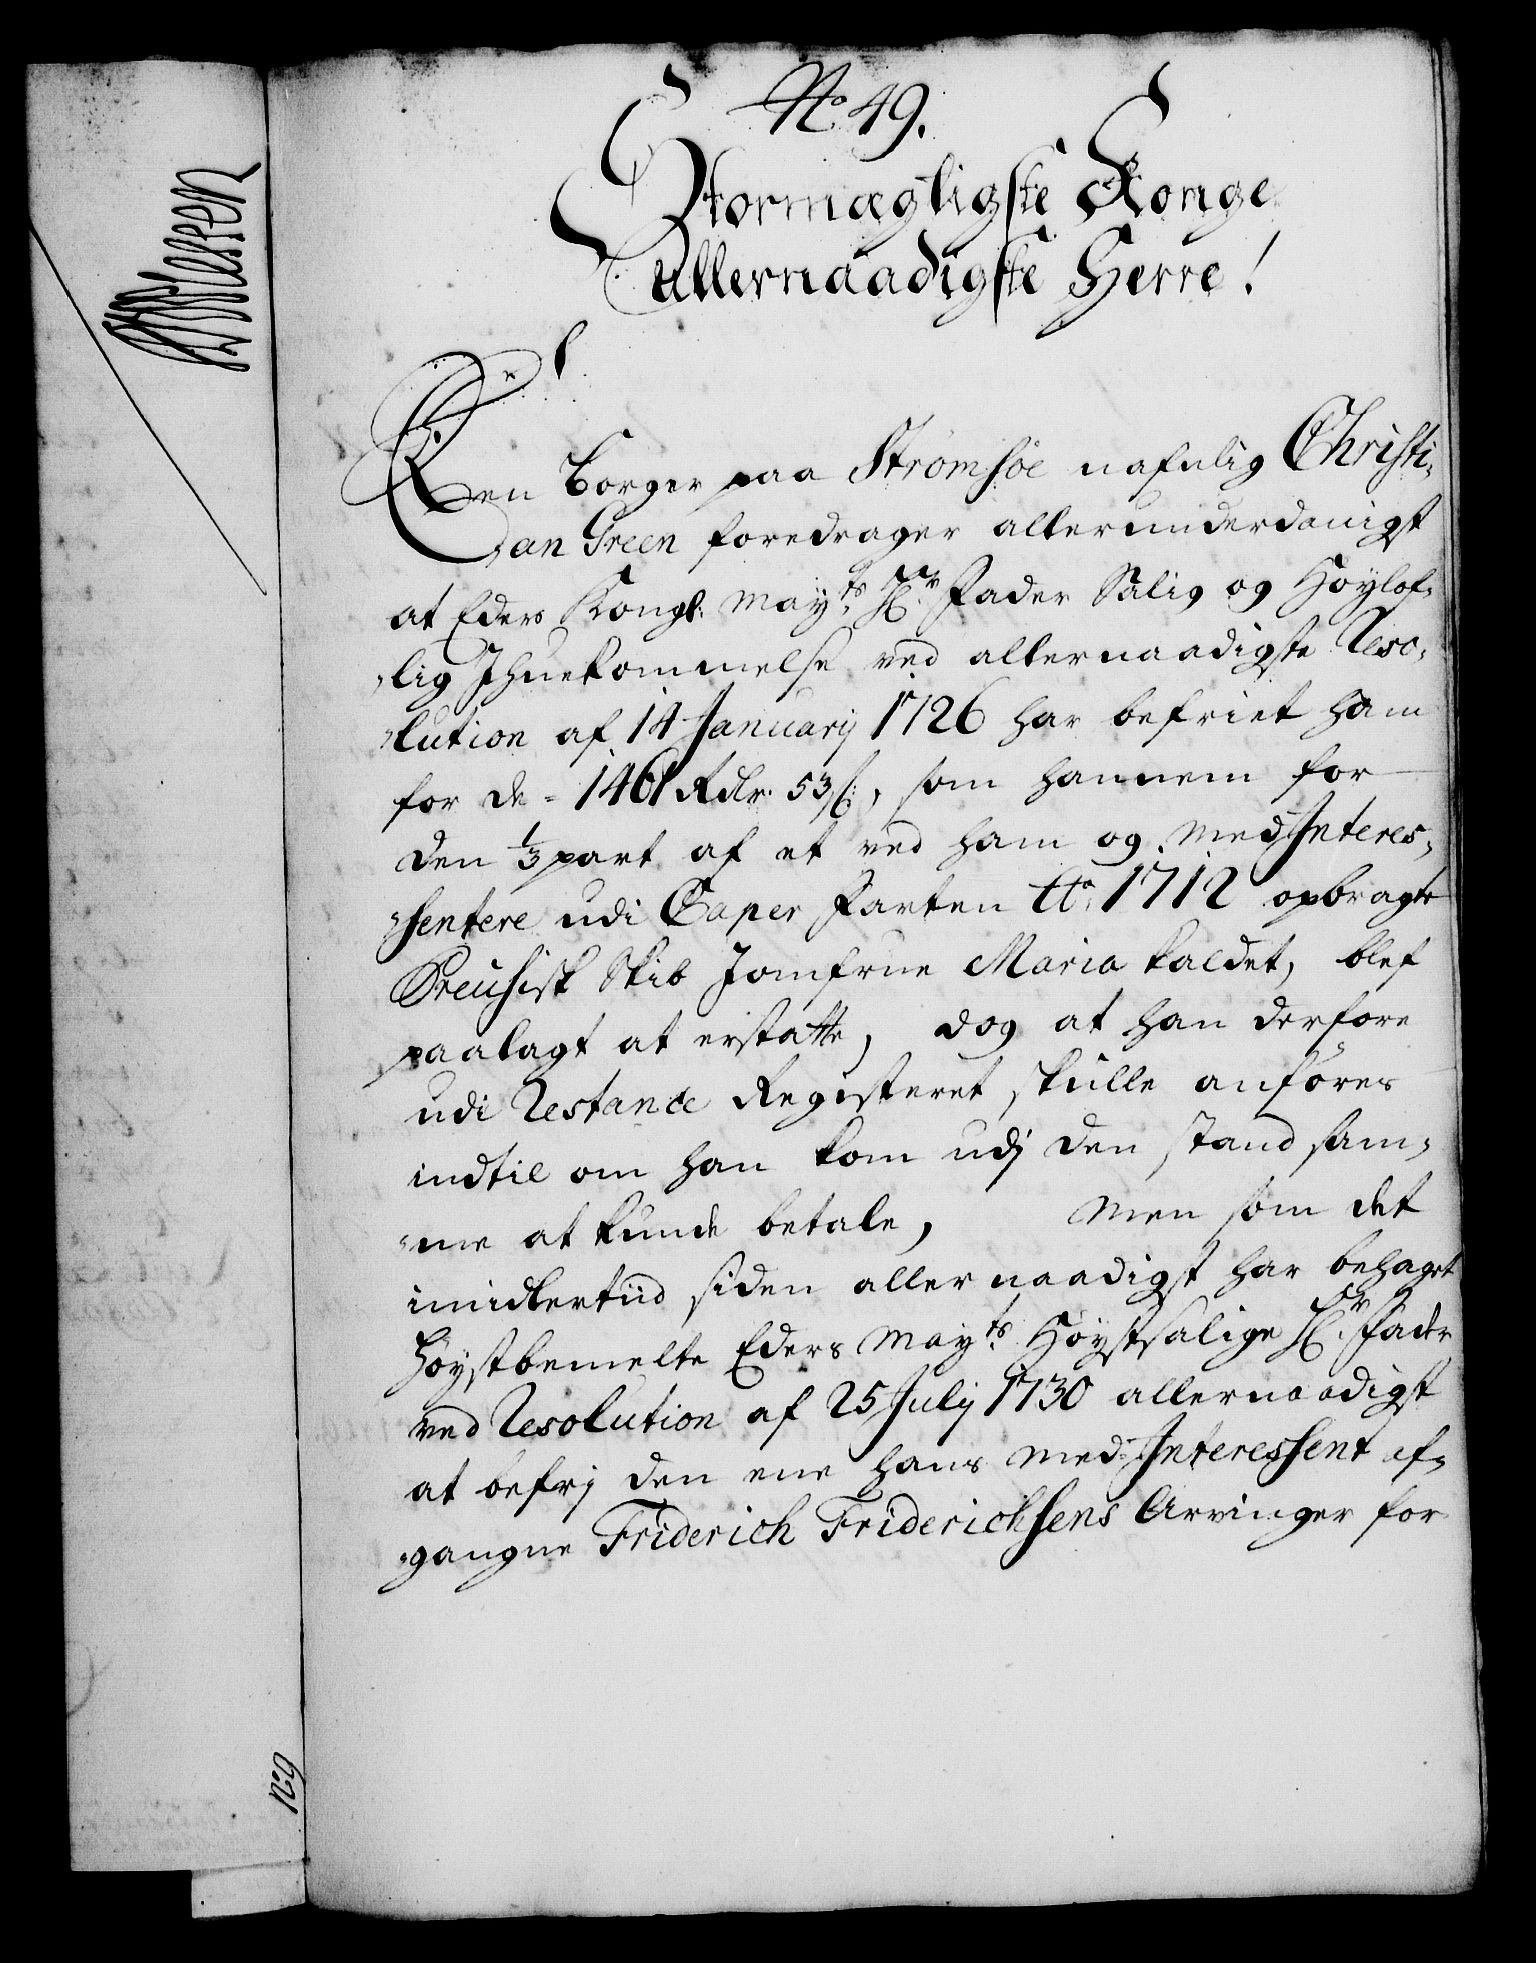 No 49.
Stormægtigste Konge
Allernaadigste Herre!
Een Borger paa Strömsöe nafnlig Christi-
an Green foredrager allerunderdanigst
at Eders Kongl: Mayts Hr Fader Salig og Höylof-
lig Ihuekommelse ved allernaadigste Reso-
lution af 14 Januarij 1726 har befriet ham
for de - 1461 Rdlr. 53 ß, som hannem for
den ⅓ part af et ved ham og Med-Interes-
sentere udi Caper Farten Ao 1712 opbragte
Preusisk Skib Jomfrue Maria kaldet, blef
paalagt at erstatte, dog at han derfore
udi Restance Registeret skulle anföres
indtil om han kom udj den stand sam-
me at kunde betale, Men som det
imidlertiid siden allernaadigst har behaget
höystbemelte Eders Mayts Höystsalige Hr Fader
ved Resolution af 25 Julij 1730 allernaadigst
at befrj den ene hans Med-Interessent af-
gangne Friderich Friderichsens Arvinger for